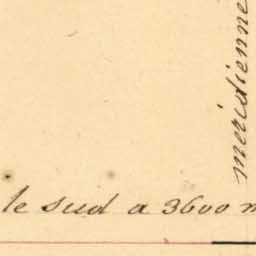 méridienne
le sud a 3600 m